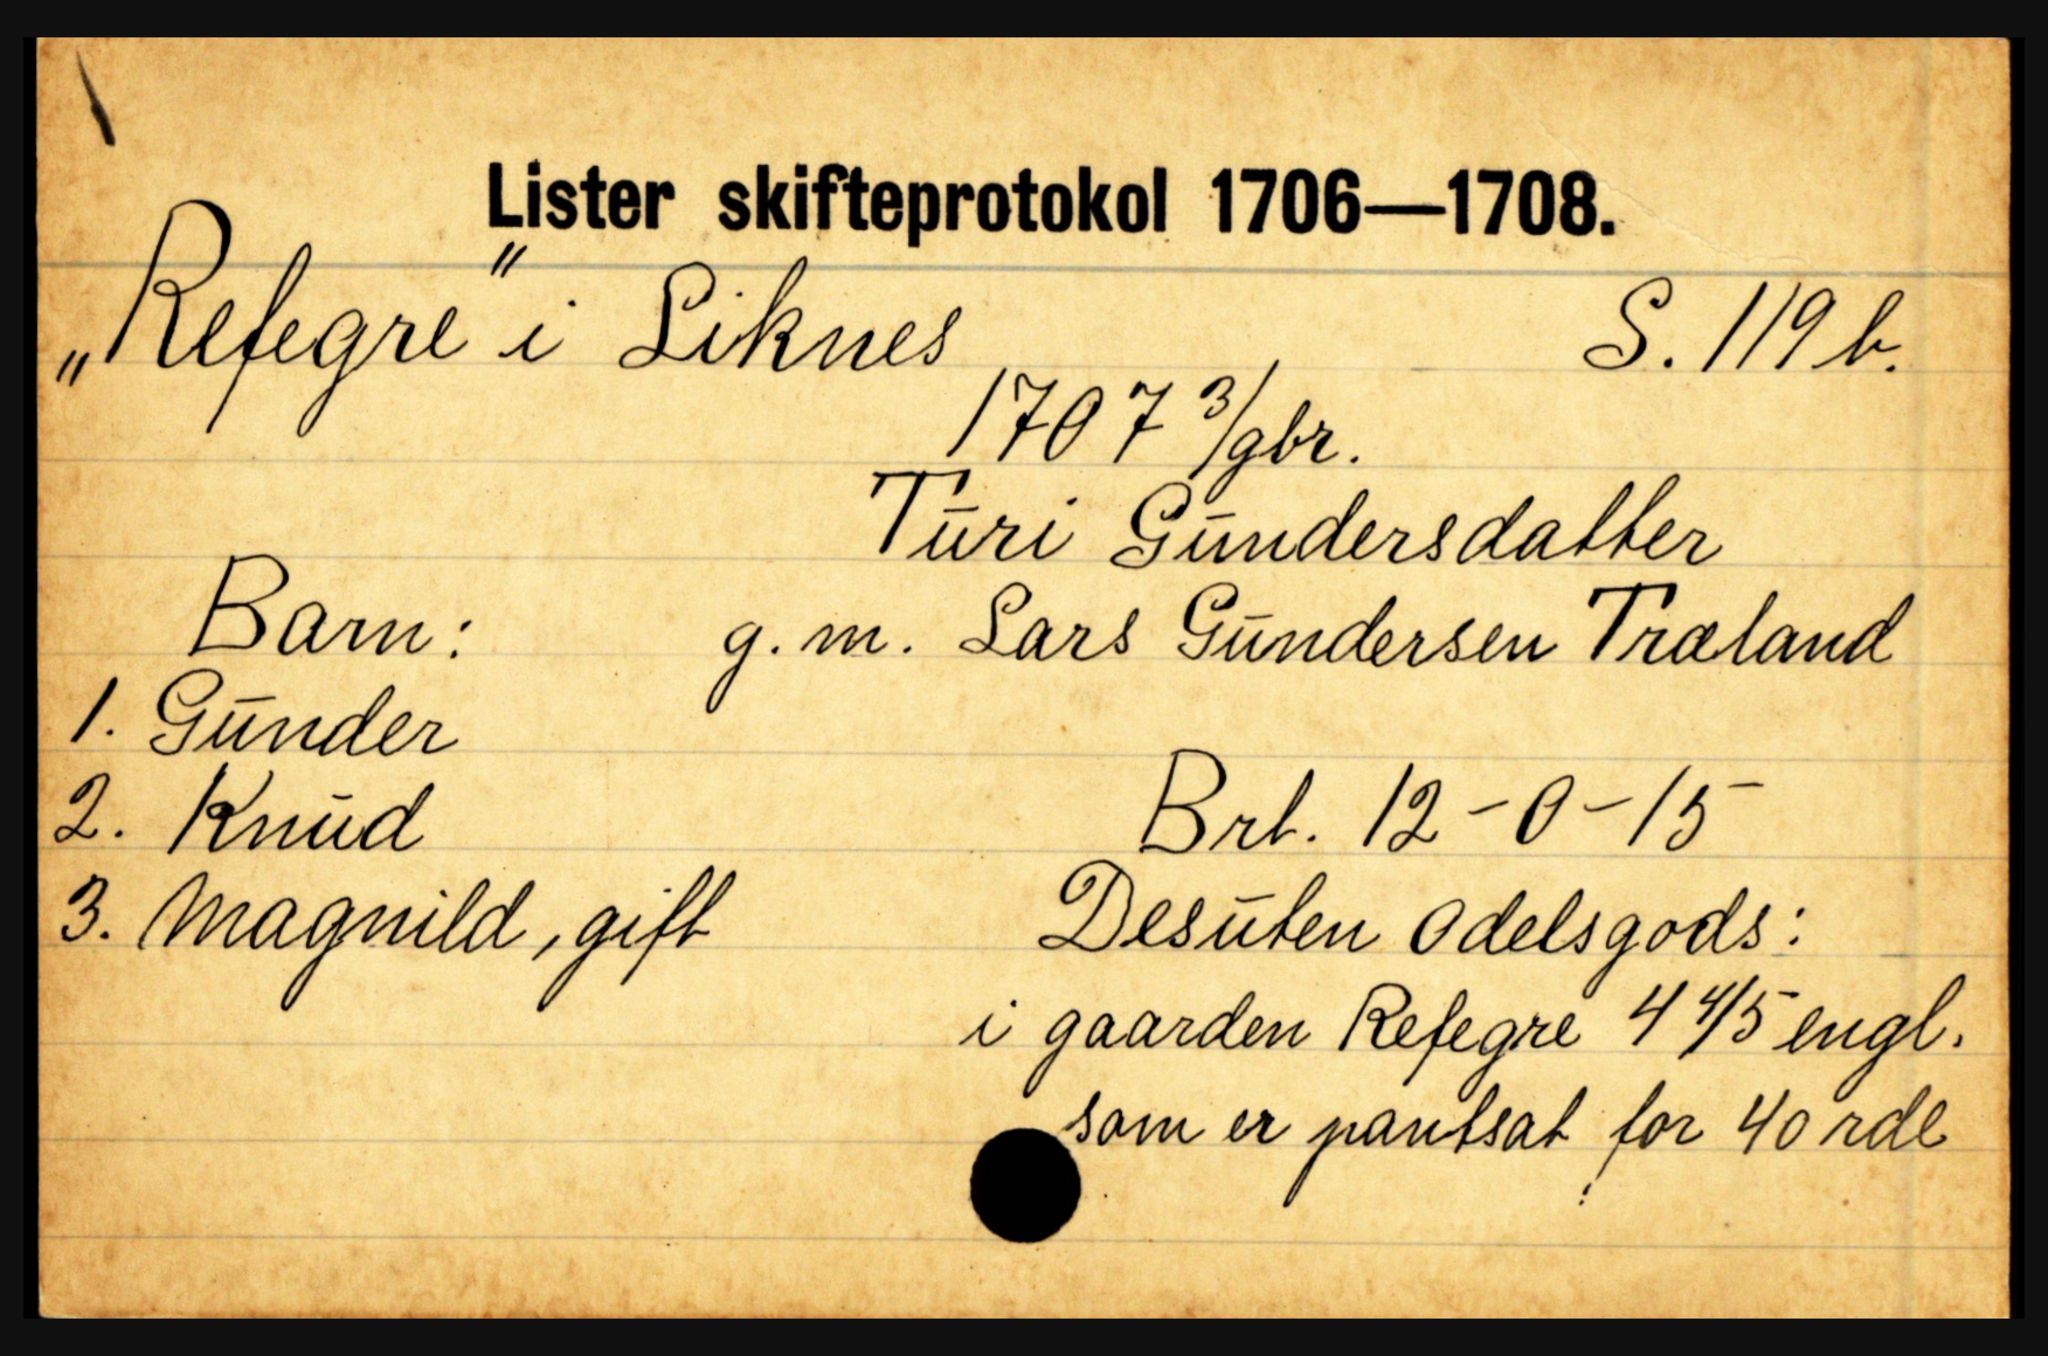 Lister skifteprotokol 1706—1708.
„Refegre" i Liknes S. 119 b.
1707 3/9br.
Turi Gundersdatter
Barn: g. m. Lars Gundersen Træland
1. Gunder
2. Knud
Brt. 12-0-15
3. Magnild, gift
Desuten odelsgods:
i gaarden Refegre 4 4/5 engl.
som er pantsat for 40 rdl